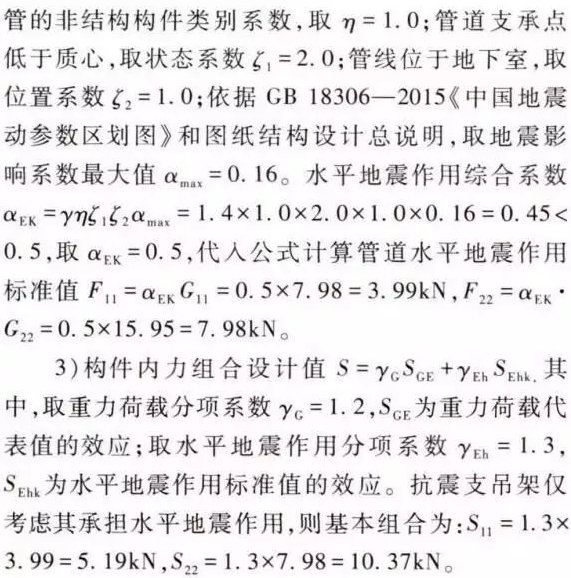 管的非结构构件类别系数,取 η=1.0;管道支承点
低于质心,取状态系数 ζ₁=2.0;管线位于地下室,取
位置系数 ζ₂=1.0;依据 GB 18306—2015《中国地震
动参数区划图》和图纸结构设计总说明,取地震影
响系数最大值 α_max=0.16。水平地震作用综合系数
α_EK=γηζ₁ζ₂α_max=1.4×1.0×2.0×1.0×0.16=0.45<
0.5,取 α_EK=0.5,代入公式计算管道水平地震作用
标准值 F₁₁=α_EK G₁₁=0.5×7.98=3.99kN,F₂₂=α_EK·
G₂₂=0.5×15.95=7.98kN。
3)构件内力组合设计值 S=γ_G S_GE+γ_Eh S_Ehk.其
中,取重力荷载分项系数 γ_G=1.2,S_GE为重力荷载代
表值的效应;取水平地震作用分项系数 γ_Eh=1.3,
S_Ehk为水平地震作用标准值的效应。抗震支吊架仅
考虑其承担水平地震作用,则基本组合为:S₁₁=1.3×
3.99=5.19kN,S₂₂=1.3×7.98=10.37kN。